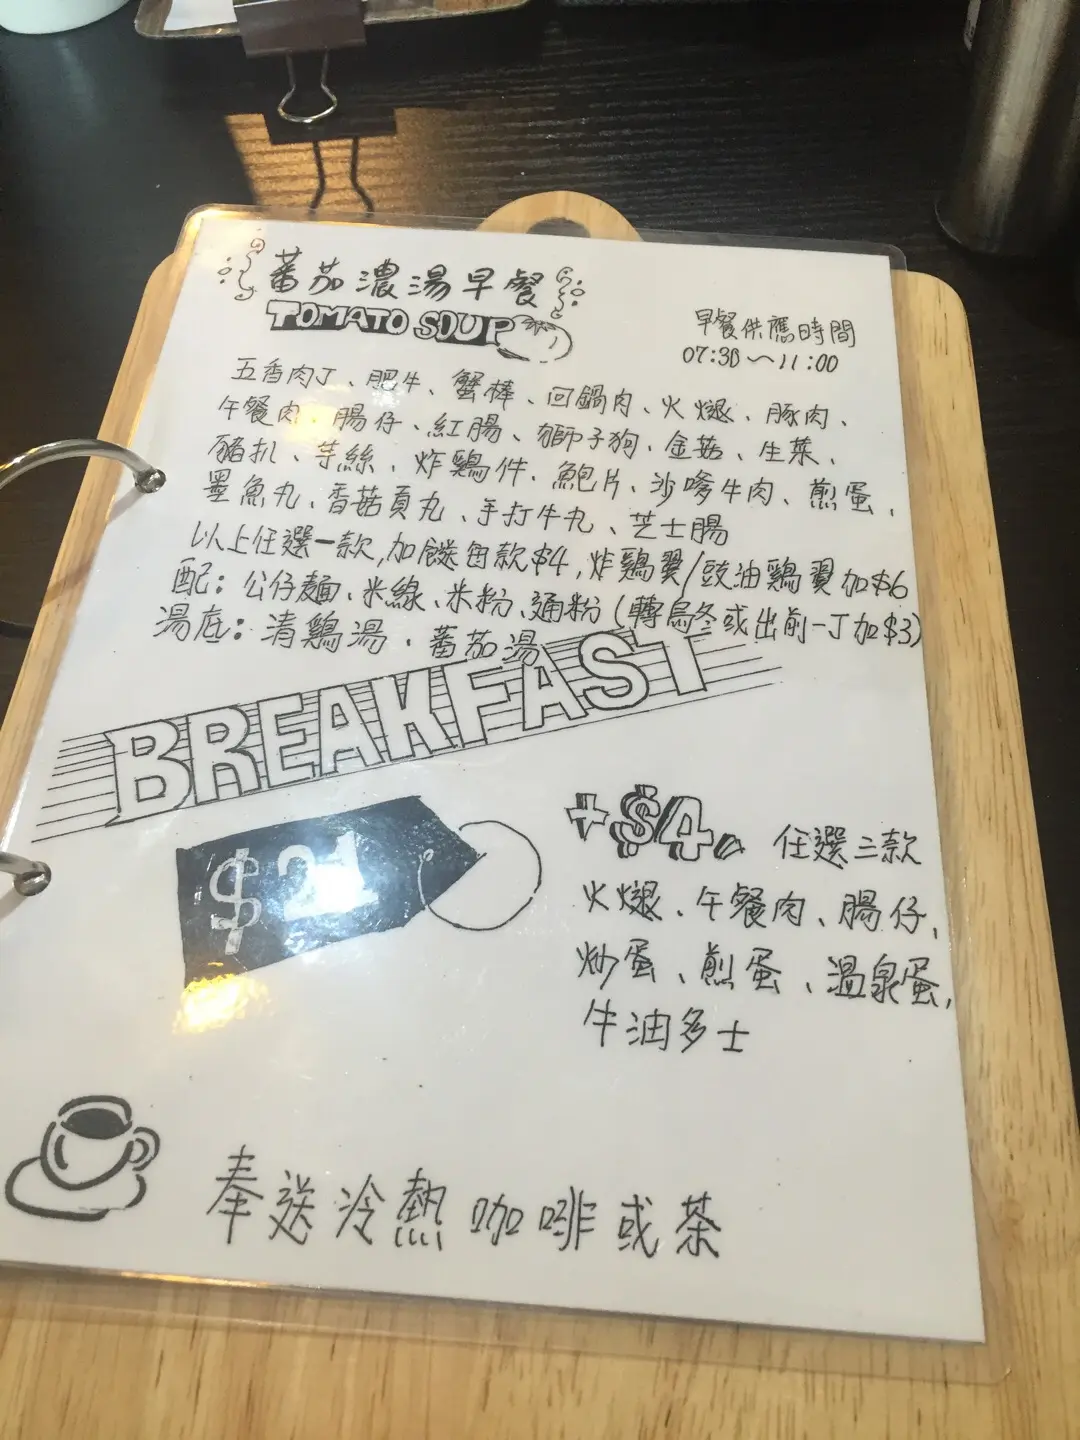 蕃茄濃湯早餐
TOMATO SOUP
早餐供應時間
07:30~11:00
五香肉丁、肥牛、蟹棒、回鍋肉、火腿、豚肉、
午餐肉、腸仔、紅腸、獅子狗、金菇、生菜、
豬扒、芋絲、炸鷄件、鮑片、沙嗲牛肉、煎蛋、
墨魚丸、香菇貢丸、手打牛丸、芝士腸
以上任選一款,加餸每款$4,炸鷄翼/豉油鷄翼加$6
配:公仔麵、米線、米粉、通粉(轉烏冬或出前一丁加$3)
湯底:清鷄湯、蕃茄湯
BREAKFAST
$21
+$4 任選二款
火腿、午餐肉、腸仔、
炒蛋、煎蛋、溫泉蛋、
牛油多士
奉送冷熱咖啡或茶